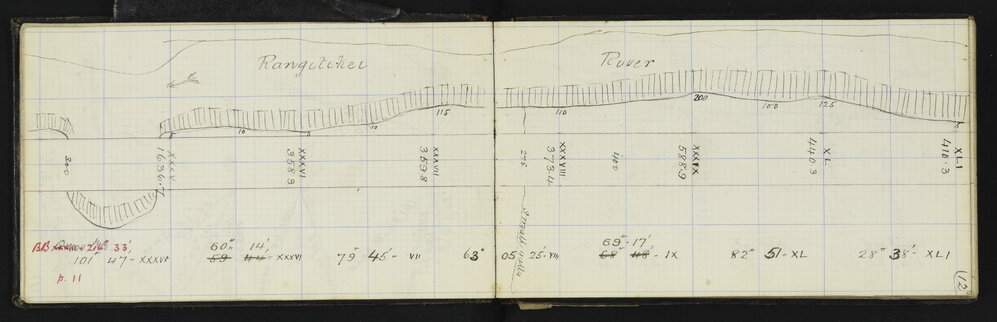 Rangitikei River
10 10 115 110 200 100 125
300
XXXV
1636.7
XXXVI
358.3
XXXVII
359.8
275
XXXVIII
373.4
400
XXXIX
588.9
XL
440.3
XLI
410.3
Small gully
BB 216° 33'
101° 47 - XXXVI
p. 11
60° 14'
59 44 - XXXVI
79° 45' - VII
63° 05 25' - VIII
69° 17'
68° 48' - IX
82° 51 - XL
28° 38' - XLI
12